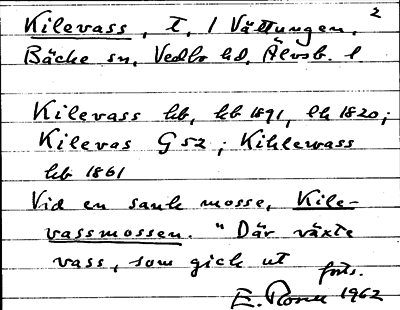 2
Kilevass, t, / Vättungen,
Bäcke sn, Vedbo hd, Älvsb. l
Kilevass hb, hb 1891, lk 1820;
Kilevas G 52; Kihlewass
hb 1861
Vid en sank mosse, Kile-
vassmossen. "Där växte
vass, som gick ut
forts.
E. 1962